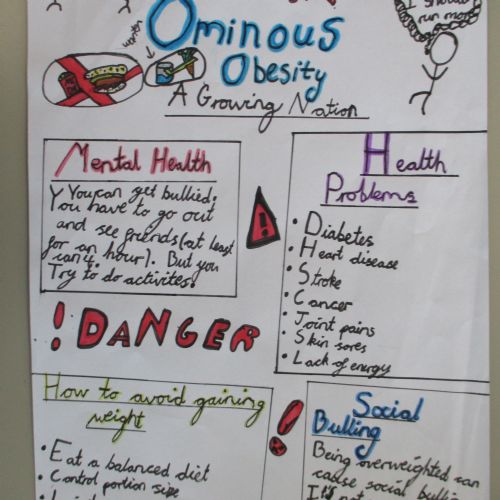 I should
run more
women
Ominous
Obesity
A Growing Nation
Mental Health
Y You can get bullied.
You have to go out
and see friends (at least
for an hour). But you
can't.
Try to do activites.
Health
Problems
• Diabetes
• Heart disease
• Stroke
• Cancer
• Joint pains
• Skin sores
• Lack of energy
! DANGER
!
How to avoid gaining
weight
• Eat a balanced diet
• Control portion size
!
Social
Bulling
Being overweighted can
cause social